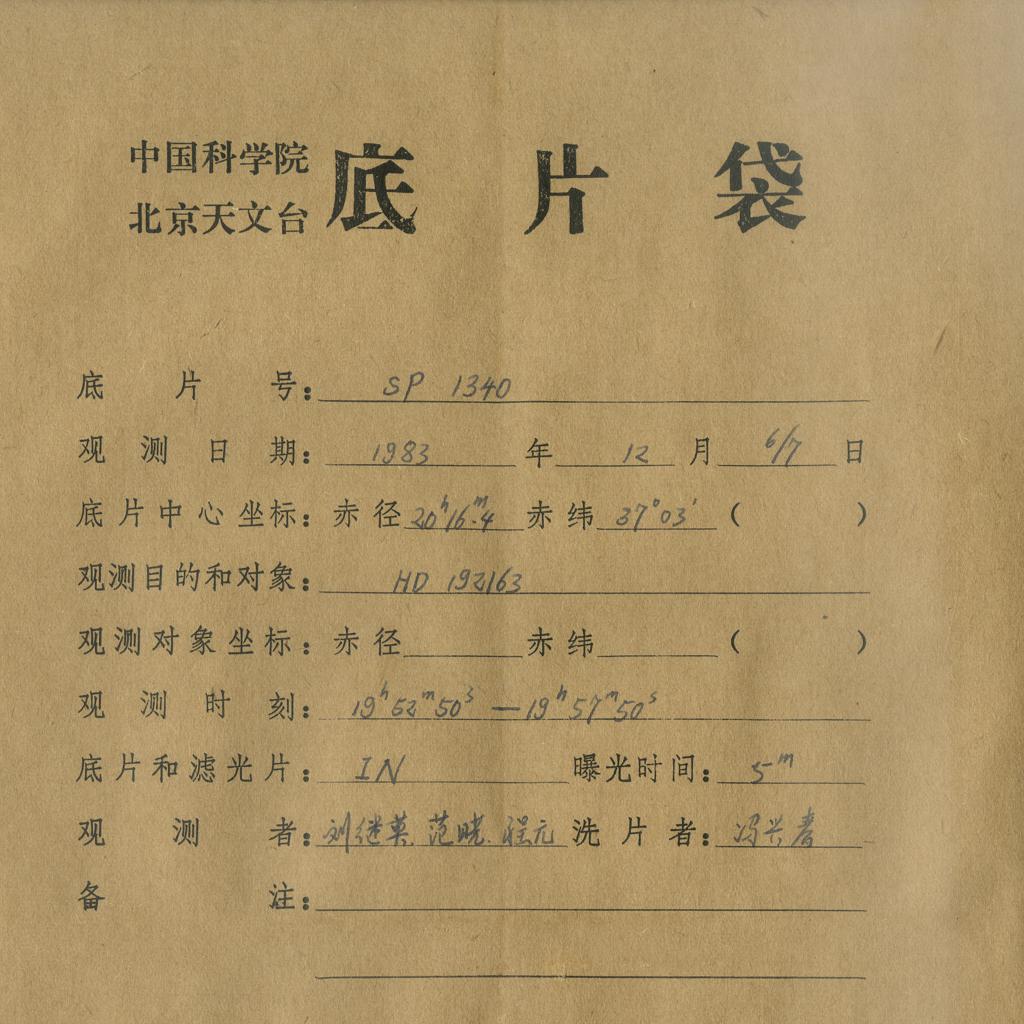 中国科学院
北京天文台
底片袋
底片号： SP 1340
观测日期： 1983 年 12 月 6/7 日
底片中心坐标：赤径 20h16m.4 赤纬 37°03′ （ ）
观测目的和对象： HD 192163
观测对象坐标：赤径 赤纬 （ ）
观测时刻： 19h52m50s — 19h57m50s
底片和滤光片： IN 曝光时间： 5m
观测者：刘继英 范晓 程元 洗片者：冯兴春
备注：